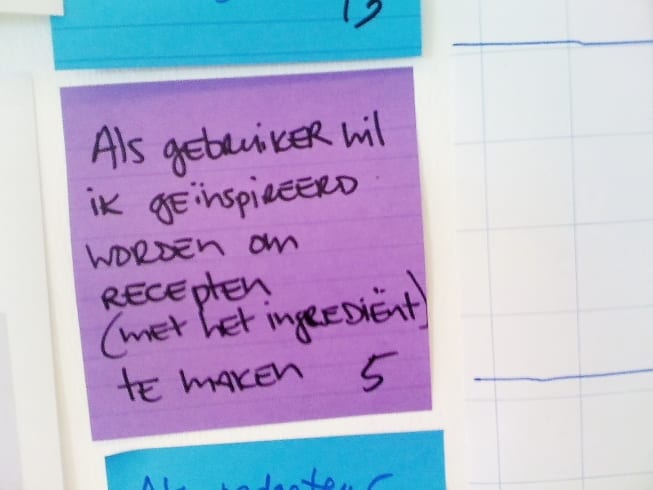 13
Als gebruiker wil
ik geïnspireerd
worden om
recepten
(met het ingrediënt)
te maken 5